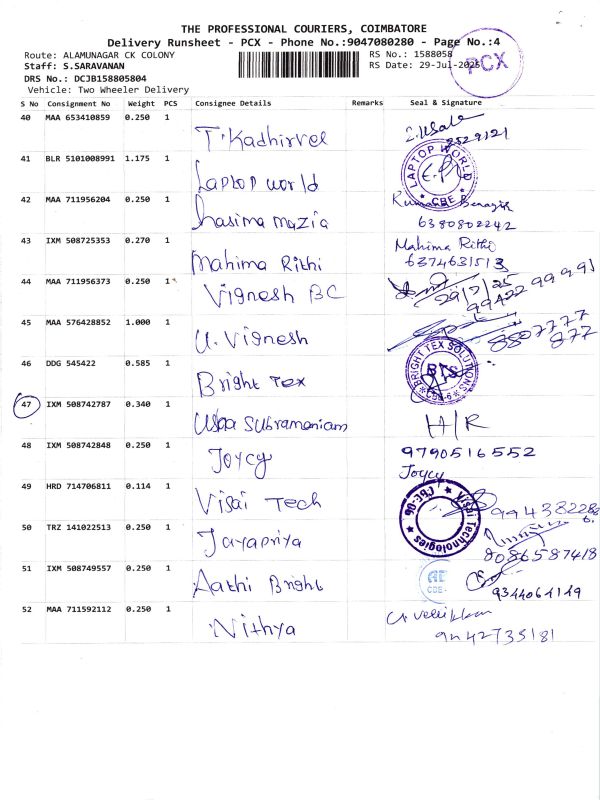 THE PROFESSIONAL COURIERS, COIMBATORE
Delivery Runsheet - PCX - Phone No.:9047080280 - Page No.:4
Route: ALAMUNAGAR CK COLONY
RS No.: 1588058
Staff: S.SARAVANAN
RS Date: 29-Jul-2025
PCX
DRS No.: DCJB158805804
Vehicle: Two Wheeler Delivery
S No Consignment No Weight PCS Consignee Details Remarks Seal & Signature
40 MAA 653410859 0.250 1
T. Kadhirvel
41 BLR 5101008991 1.175 1
Laptop world
LAPTOP WORLD
CBE
42 MAA 711956204 0.250 1
hasima mazia
6380802242
43 IXM 508725353 0.270 1
Mahima Rithi
Mahima Rithi
6374631513
44 MAA 711956373 0.250 1
Vignesh BC
29/7/25
45 MAA 576428852 1.000 1
U. Vignesh
8807777
877
46 DDG 545422 0.585 1
Bright Tex
BRIGHT TEX SOLUTIONS
BTS
CBE-6
47 IXM 508742787 0.340 1
Usha Subramaniam
H/R
48 IXM 508742848 0.250 1
Joycy
9790516552
Joycy
49 HRD 714706811 0.114 1
Visai Tech
Visai Technologies
CBE-06
50 TRZ 141022513 0.250 1
Jayapriya
8086587418
51 IXM 508749557 0.250 1
Aathi Bright
CBE-
9344064149
52 MAA 711592112 0.250 1
Nithya
9442735181